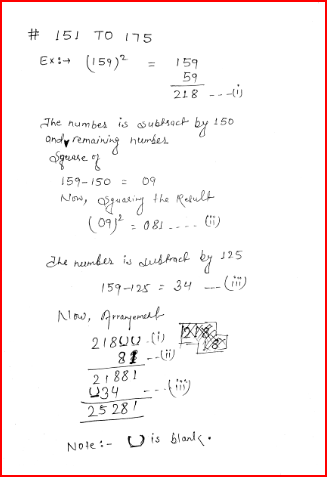 # 151 TO 175
Ex:→ (159)² = 159
59
218 ---(i)
The number is subtract by 150
and remaining number
square of
159-150 = 09
Now, squaring the Result
(09)² = 081 .... (ii)
The number is subtract by 125
159-125 = 34 --- (iii)
Now, Arrangement
218UU -(i)
81 --(ii)
21881
U34 ---(iii)
25281
Note:- U is blank.